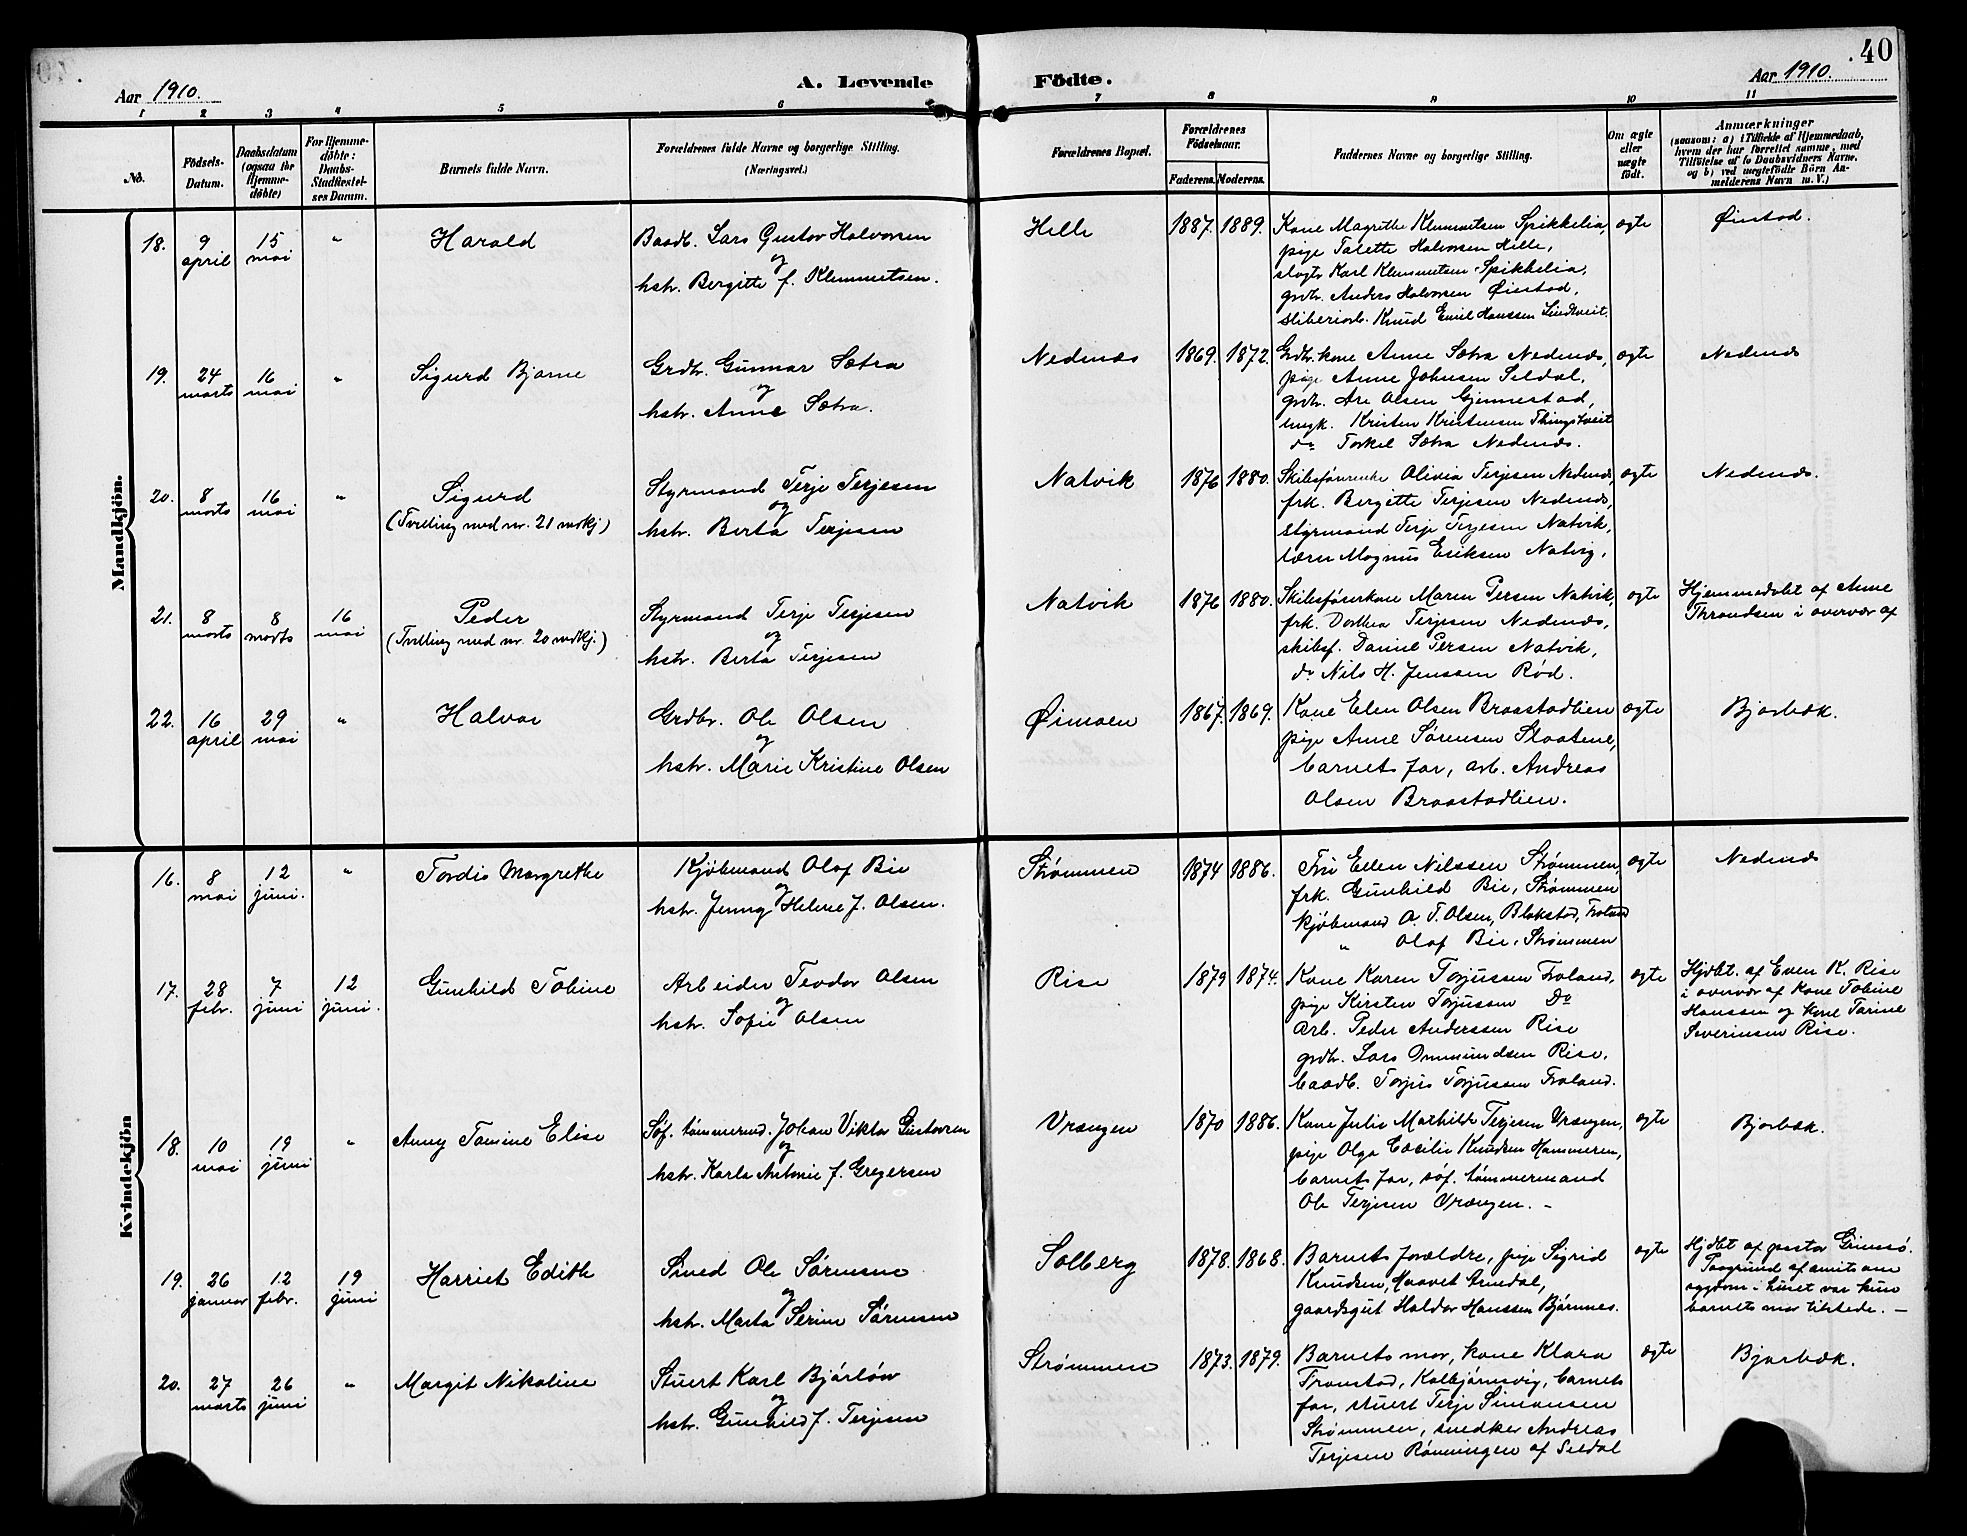 40
Aar 1910.
A. Levende
Födte.
Aar 1910.
1 2 3 4 5 6 7 8 9 10 11
No.
Födsels-
Datum.
Daabsdatum
(ogsaa for
Hjemme-
döbte)
For Hjemme-
döbte:
Daabs-
Stadfæstel-
ses Datum.
Barnets fulde Navn.
Forældrenes fulde Navne og borgerlige Stilling.
(Næringsvei.)
Forældrenes Bopæl.
Forældrenes
Födselsaar.
Faderens. Moderens.
Faddernes Navne og borgerlige Stilling.
Om ægte
eller
uægte
födt.
Anmærkninger
(saasom: a) i Tilfælde af Hjemmedaab,
hvem der har forrettet samme, med
Tilföielse af to Daabsvidners Navne,
og b) ved uægtefödte Börn An-
melderens Navn m. V.)
Mandkjön.
18. 9 april 15 mai " Harald
Baadb. Lars Gustav Halvorsen
og
hstr. Bergitte f. Klemmetsen.
Helle 1887. 1889.
Kone Magrethe Klemmetsen Spikkelia,
pige Talette Halvorsen Helle,
slagter Karl Klemmetsen Spikkelia,
grdbr. Anders Halvorsen Øinstad,
sliberiarb. Knud Emil Hanssen Lindtveit.
ægte Øistad.
19. 24 marts 16 mai " Sigurd Bjarne
Grdbr. Gunnar Sætra
og
hstr. Anne Sætra.
Nedenæs 1869. 1872.
Grdbr. kone Anne Sætra Nedenæs,
pige Anne Johnsen Seldal,
grdbr. Are Olsen Gjennestad,
ungk. Kristen Kristensen Thingstveit
do Torkel Sætra Nedenæs.
ægte Nedenæs
20. 8 marts 16 mai " Sigurd
(Tvilling med nr. 21 mdkj)
Styrmand Terje Terjesen
og
hstr. Berta Terjesen
Natvik 1876 1880.
Skibsførerenke Olivia Terjesen Nedenæs,
frk. Bergitte Terjesen Nedenæs,
styrmand Terje Terjesen Natvik,
lærer Magnus Eriksen Natvig.
ægte Nedenæs.
21. 8 marts 8 marts 16 mai Peder
(Tvilling med nr. 20 mdkj.)
Styrmand Terje Terjesen
og
hstr. Berta Terjesen
Natvik 1876 1880.
Skibsførerkone Maren Persen Natvik,
frk. Dorthea Terjesen Nedenæs,
skibsf. Daniel Persen Natvik,
do Nils H. Jenssen Rød.
ægte
Hjemmedøbt af Anne
Throndsen i overvær af
22. 16 april 29 mai " Halvor
Grdbr. Ole Olsen
og
hstr. Marie Kristine Olsen
Øimoen 1867. 1869.
Kone Elen Olsen Braastadlien
pige Anne Sørensen Slaatene,
barnets far, arb. Andreas
Olsen Braastadlien.
ægte Bjorbæk.
Kvindekjön
16. 8 mai 12 juni. " Tordis Margrethe
Kjøbmand Olaf Bie
og
hstr. Jenny Helene f. Olsen.
Strømmen 1874 1886.
Fru Ellen Nilssen Strømmen,
frk. Gunhild Bie, Strømmen
Kjøbmand A. T. Olsen, Blakstad, Froland
" Olaf Bie, Strømmen
ægte Nedenæs
17. 28 febr. 7 juni 12 juni. Gunhild Tobine
Arbeider Teodor Olsen
og
hstr. Sofie Olsen
Rise 1879 1874.
Kone Karen Torjussen Froland,
pige Kirsten Torjussen Do
Arb. Peder Anderssen Rise
grdbr. Lars Ommundsen Rise,
baadb. Torjus Torjussen Froland.
ægte
Hjdbt. af Even K. Rise
i overvær af kone Tobine
Hanssen og kone Tarine
Severinsen Rise.
18. 10 mai 19 juni " Anny Tomine Elise
Søf. tømmermd. Johan Viktor Gustavsen
og
hstr. Karla Antonie f. Gregersen
Vrængen 1870 1886.
Kone Julie Mathilde Terjesen Vrængen,
pige Olga Cecilie Knudsen Hammeren,
barnets far, søf. tømmermand
Ole Terjesen Vrængen. -
ægte Bjorbæk.
19. 26 januar 12 febr. 19 juni Harriet Edith
Smed Ole Sørensen
og
hstr. Marta Serine Sørensen
Solberg 1878. 1868.
Barnets forældre, pige Sigrid
Knudsen, Haavet Arendal,
gaardsgut Haldor Hanssen Bjørnnes.
ægte
Hjdbt af pastor Grimsø.
Paagrund af smitsom
sygdom i huset var kun
barnets mor tilstede. -
20. 27 marts 26 juni " Margit Nikoline
Stuert Karl Bjørløw
og
hstr. Gunhild f. Terjesen
Strømmen 1873. 1879.
Barnets mor, kone Klara
Fronstad, Kolbjørnsvig, barnets
far, stuert Terje Simonsen
Strømmen, snedker Andreas
Terjesen Rønningen af Seldal
ægte Bjorbæk.